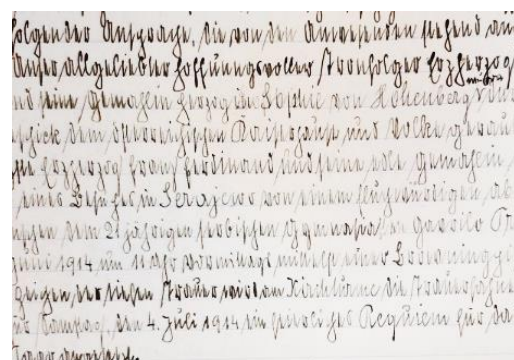 folgender Ansprache, die von den Anwesenden stehend an
Unser allgeliebter hoffnungsvoller Thronfolger Erzherzog
nd seine Gemahlin Herzogin Sophie von Hohenberg
schick dem österreichischen Kaiserhause und Volke geraub
Erzherzog Franz Ferdinand und seine edle Gemahlin
eines Besuches in Serajewo von einem fluchwürdigen
schen dem 21 jährigen serbischen Gymnasiasten Gavrilo Pr
Juni 1914 um 11 Uhr Vormittags mittelst einer Browning
zeigen der tiefen Trauer wird am Kirchturme die Trauerfahne
Samstag, den 4. Juli 1914 ein feierliches Requiem für da